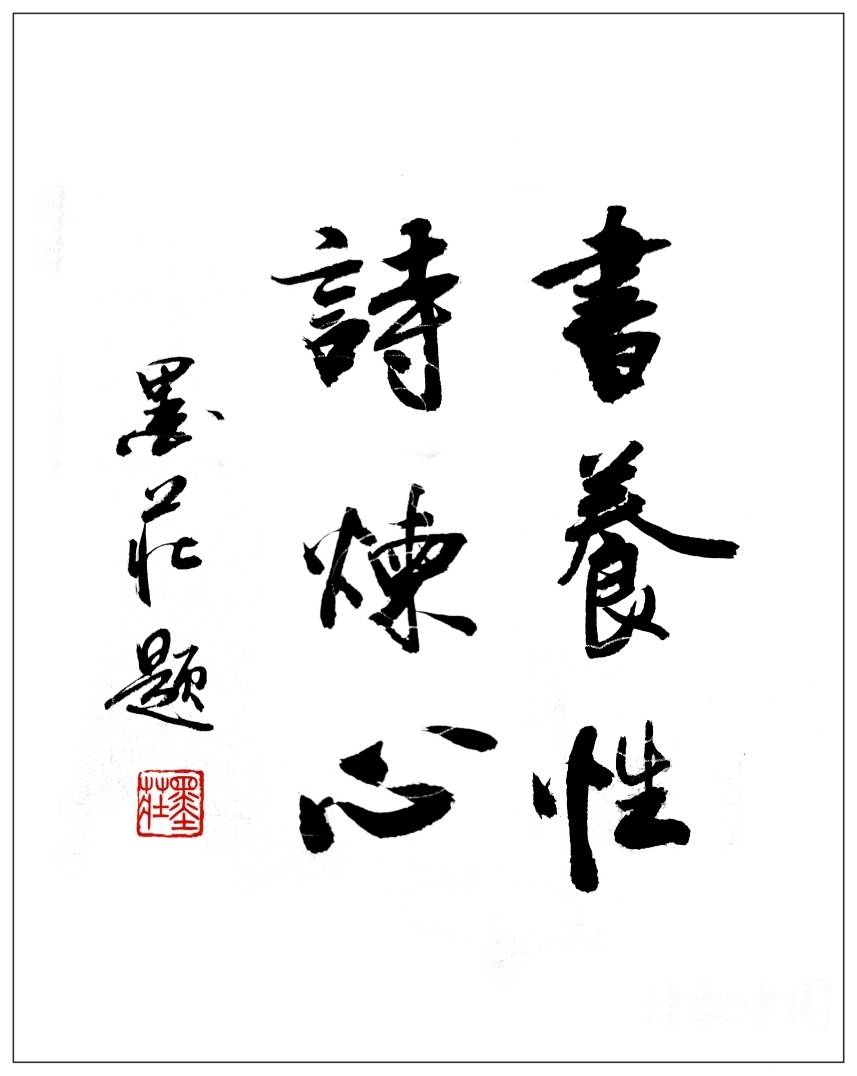 書養性
詩煉心
墨莊题
墨莊
诗歌中国